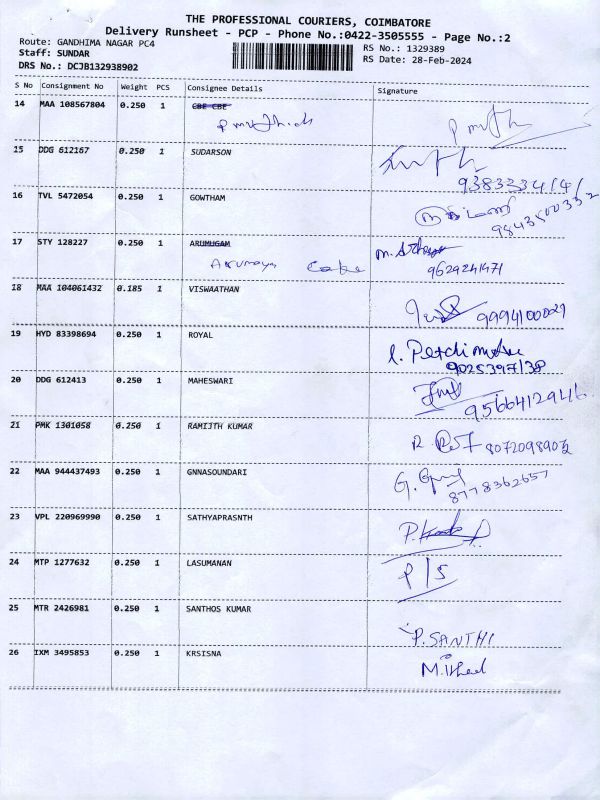 THE PROFESSIONAL COURIERS, COIMBATORE
Delivery Runsheet - PCP - Phone No.:0422-3505555 - Page No.:2
Route: GANDHIMA NAGAR PC4 RS No.: 1329389
Staff: SUNDAR RS Date: 28-Feb-2024
DRS No.: DCJB132938902
S No Consignment No Weight PCS Consignee Details Signature
14 MAA 108567804 0.250 1 CBE CBE
15 DDG 612167 0.250 1 SUDARSON
16 TVL 5472054 0.250 1 GOWTHAM
9843500332
17 STY 128227 0.250 1 ARUMUGAM
Cake
9629241471
18 MAA 104061432 0.185 1 VISWAATHAN
9994100029
19 HYD 83398694 0.250 1 ROYAL
9025397138
20 DDG 612413 0.250 1 MAHESWARI
9566412946
21 PMK 1301058 0.250 1 RAMIJTH KUMAR
22 MAA 944437493 0.250 1 GNNASOUNDARI
8778362657
23 VPL 220969990 0.250 1 SATHYAPRASNTH
24 MTP 1277632 0.250 1 LASUMANAN
P/S
25 MTR 2426981 0.250 1 SANTHOS KUMAR
P. SANTHI
26 IXM 3495853 0.250 1 KRSISNA